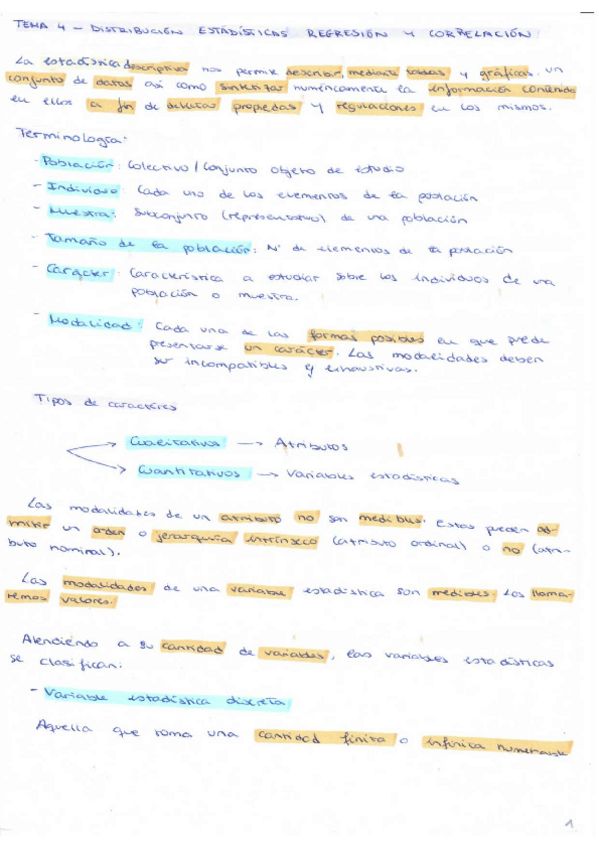 TEMA 4 – DISTRIBUCIÓN ESTADÍSTICAS REGRESIÓN Y CORRELACIÓN
La estadística descriptiva nos permite describir, mediante tablas y gráficas, un
conjunto de datos así como sintetizar numéricamente la información contenida
en ellos a fin de detectar propiedas y regulaciones en los mismos.
Terminología:
- Población: Colectivo / Conjunto objeto de estudio
- Individuo: Cada uno de los elementos de la población
- Muestra: Subconjunto (representativo) de una población
- Tamaño de la población: Nº de elementos de la población
- Carácter: Característica a estudiar sobre los individuos de una
población o muestra.
- Modalidad: Cada una de las formas posibles en que puede
presentarse un carácter. Las modalidades deben
ser incompatibles y exhaustivas.
Tipos de caractéres
Cualitativos → Atributos
Cuantitativos → Variables estadísticas
Las modalidades de un atributo no son medibles. Estas pueden ad-
mitir un orden o jerarquía intrínseco (atributo ordinal) o no (atri-
buto nominal).
Las modalidades de una variable estadística son medibles. Los llama-
remos valores.
Atendiendo a su cantidad de variables, las variables estadísticas
se clasifican:
- Variable estadística discreta
Aquella que toma una cantidad finita o infinita numerable
1